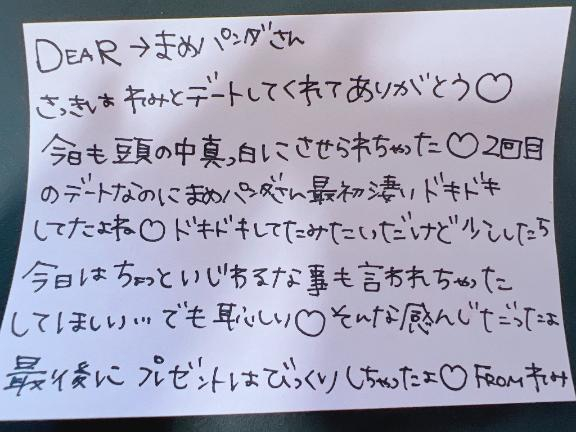 DEAR→まめパンダさん
さっきはれみとデートしてくれてありがとう♡
今日も頭の中真っ白にさせられちゃった♡2回目
のデートなのにまめパンダさん最初凄いドキドキ
してたよね♡ドキドキしてたみたいだけど少ししたら
今日はちょっといじわるな事も言われちゃった
してほしい…でも恥しい♡そんな感んじだったよ
最後にプレゼントはびっくりしちゃったよ♡FROMれみ